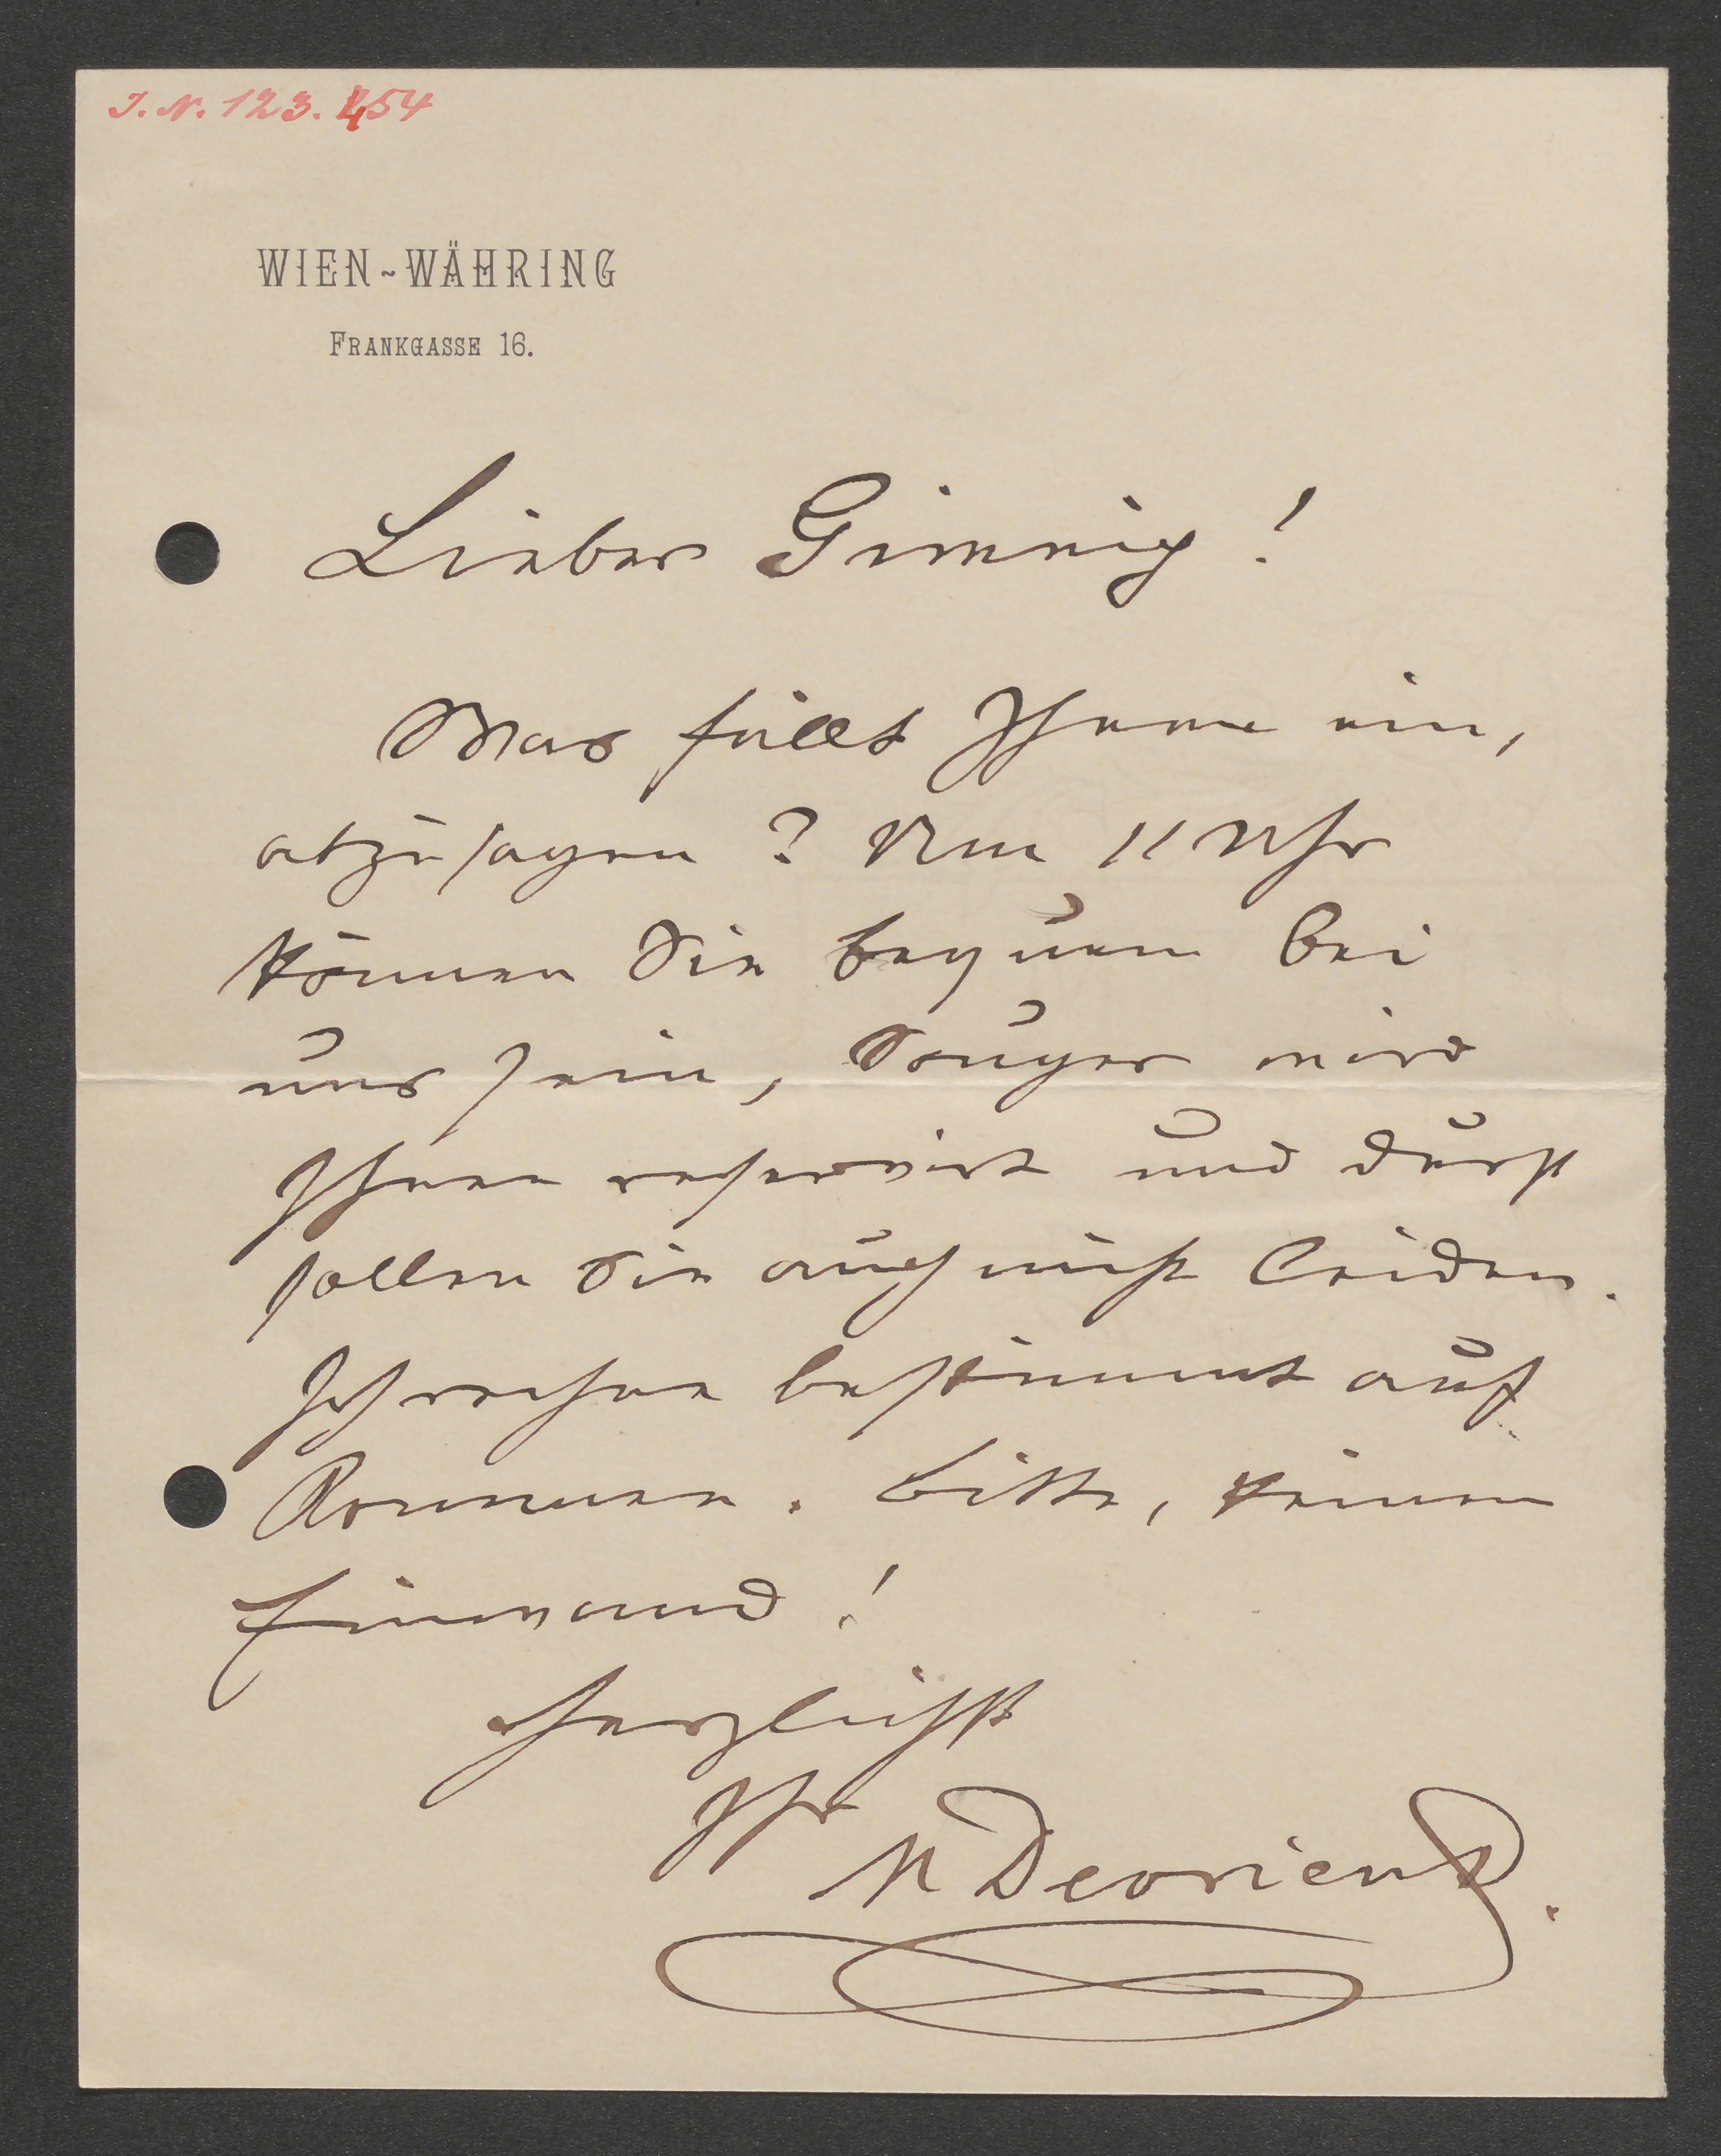 J. N. 123.454
WIEN-WÄHRING
FRANKGASSE 16.
Lieber Gimnig!
Was fällt Ihnen ein,
abzusagen? Um 11 Uhr
können Sie bequem bei
uns sein, Souper wird
Ihnen reservirt und Durst
sollen Sie auch nicht leiden.
Ich rechne bestimmt auf
Kommen. Bitte, keinen
Einwand!
Herzlichst
Ihr
M Devrient.